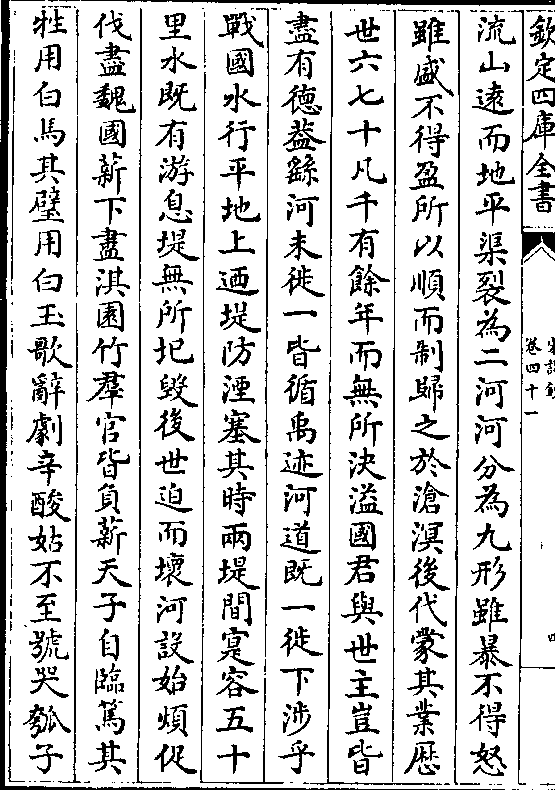 欽定四庫全書
卷四十一
流山遠而地平渠裂為二河河分為九形雖暴不得怒
雖盛不得盈所以順而制歸之於滄溟後代蒙其業歷
世六七十凡千有餘年而無所決溢國君與世主豈皆
盡有德葢繇河未徙一皆循禹迹河道既一徙下涉乎
戰國水行平地上迺堤防湮塞其時兩堤間寔容五十
里水既有游息堤無所圮毀後世迫而壞河設始煩促
伐盡魏國薪下盡淇園竹羣官皆負薪天子自臨篤其
牲用白馬其璧用白玉歌辭劇辛酸姑不至號哭瓠子